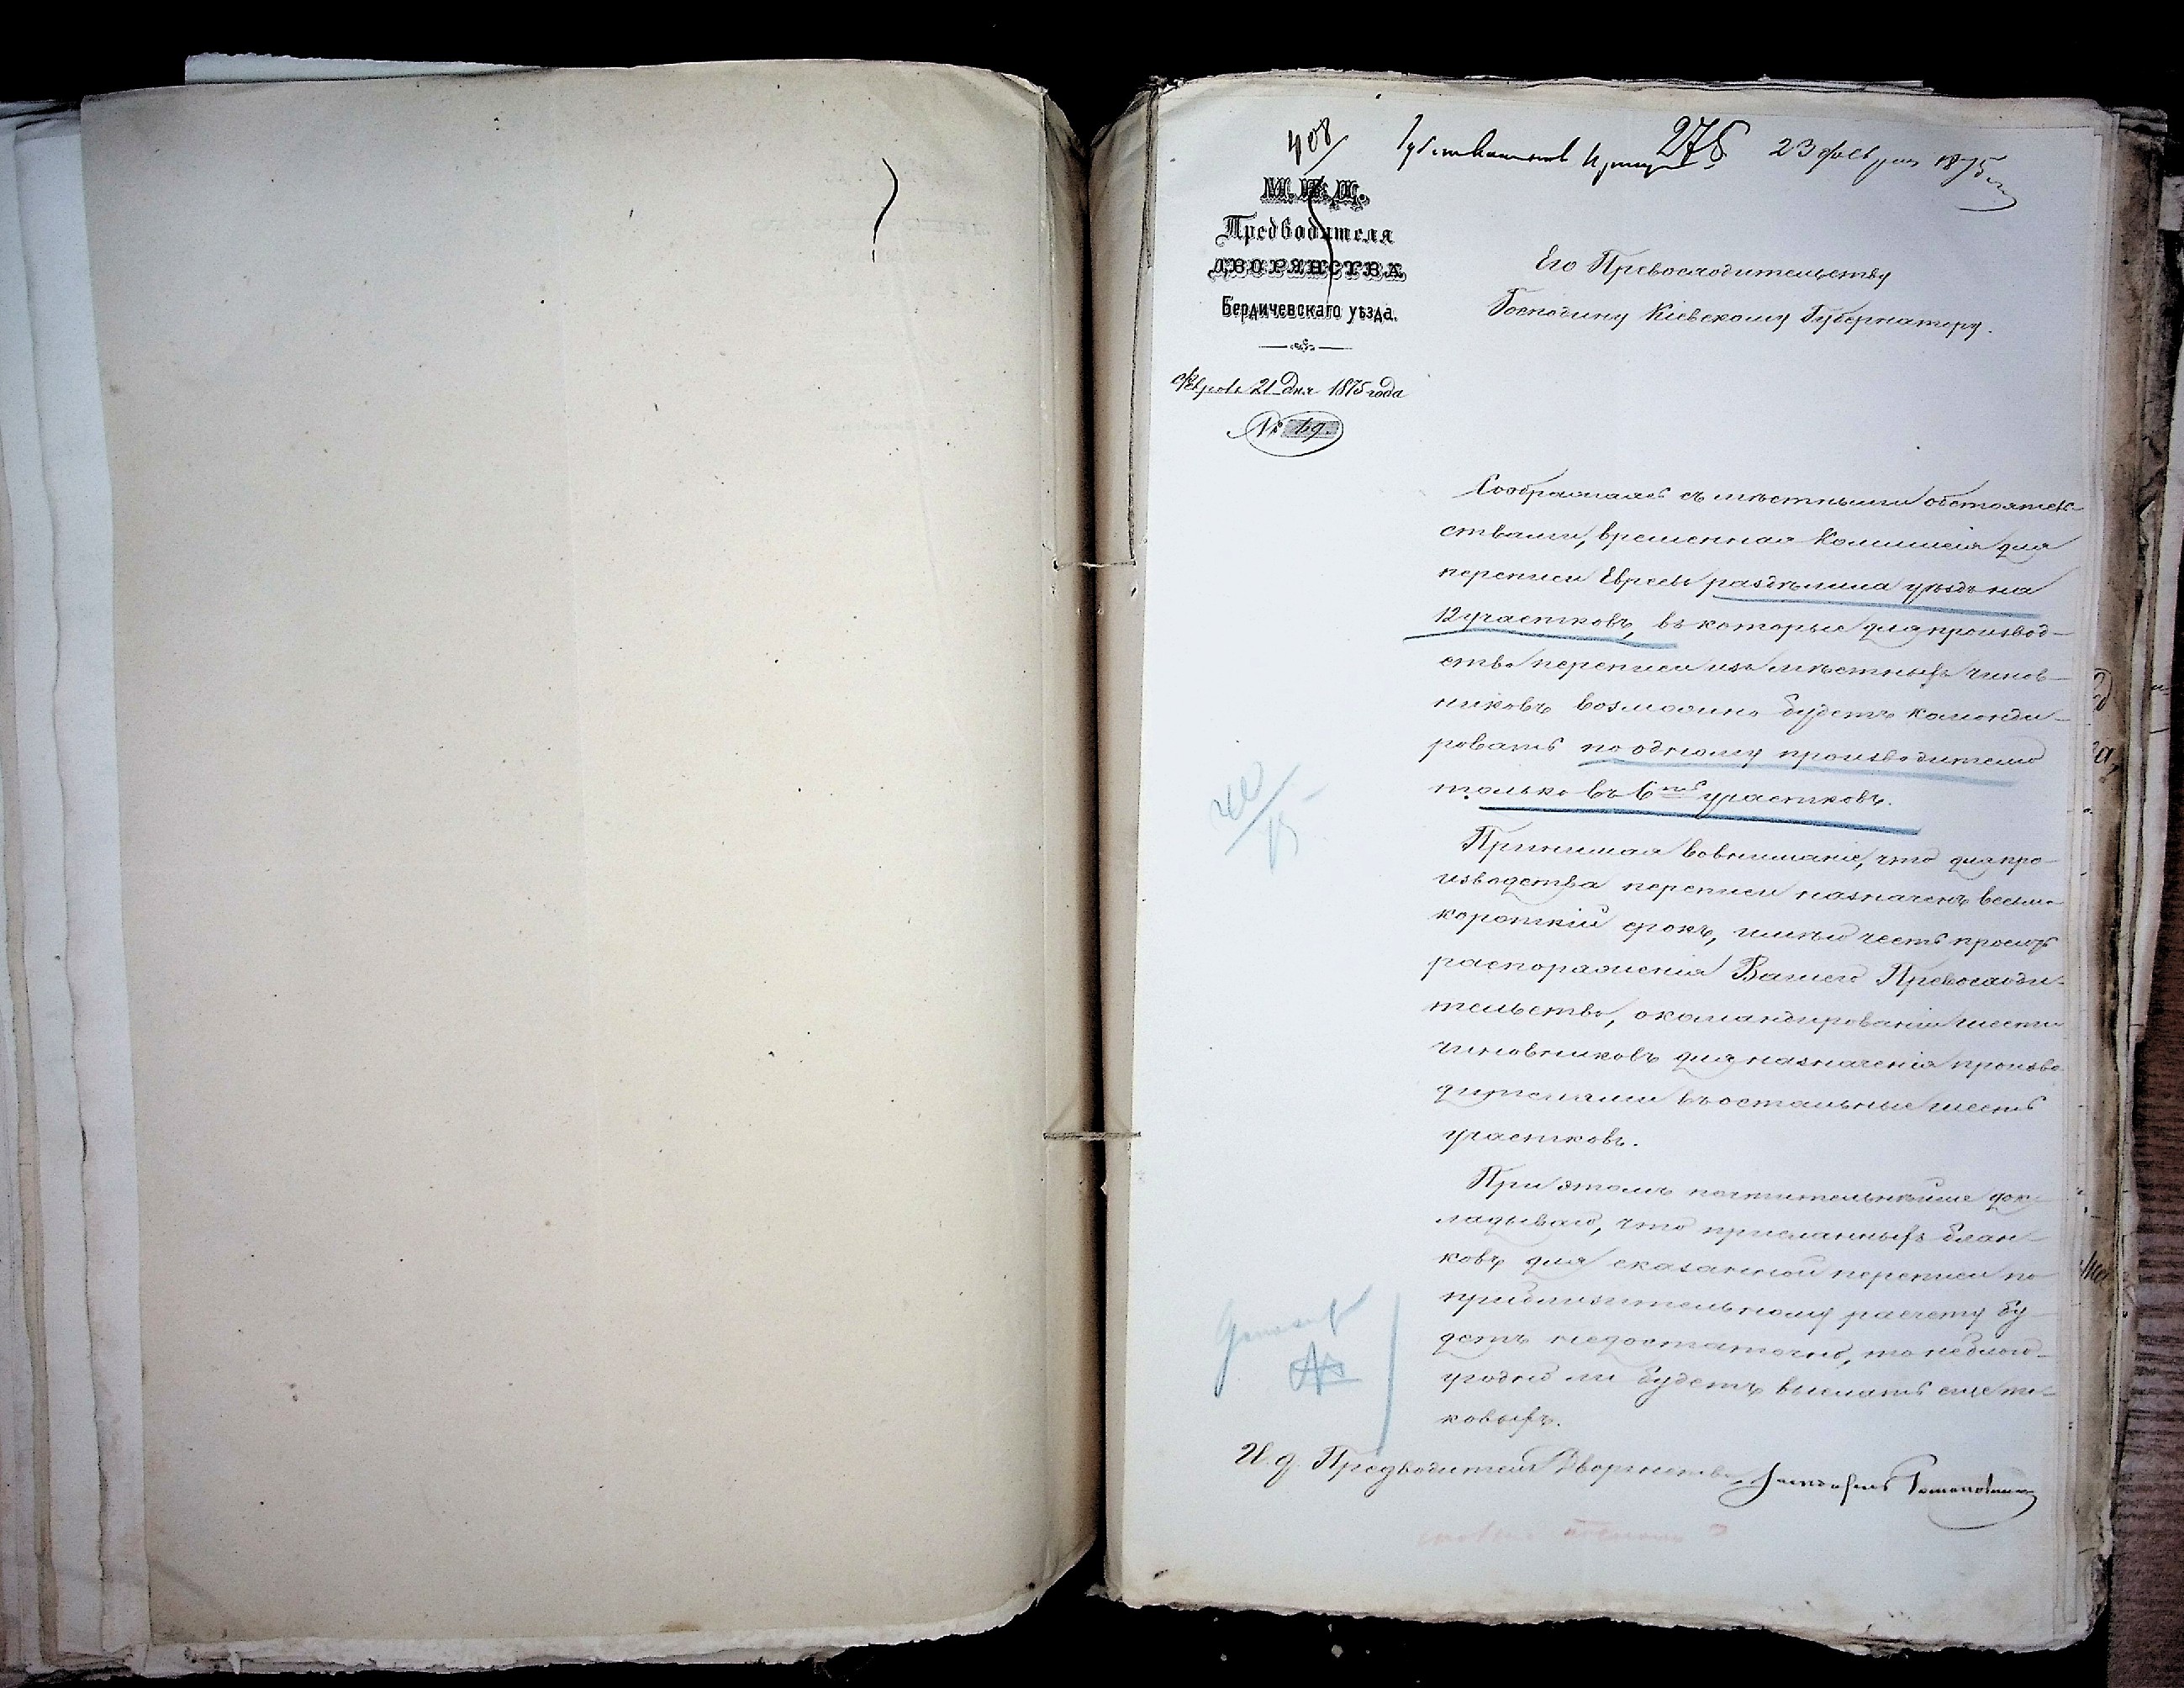 408
275 23 февраля 1875
М. В. Д.
Предводителя
ДВОРЯНСТВА
Бердичевскаго уѣзда.
Февраля 21 дня 1875 года
№ 69.
Его Превосходительству
Господину Кіевскому Губернатору.
Соображаясь съ мѣстными обстоятель-
ствами, временная Коммисія для
переписи Евреевъ раздѣлила уѣздъ на
12 участковъ, въ которые для производ-
ства переписи изъ мѣстныхъ чинов-
никовъ возможно будетъ команди-
ровать по одному производителю
только въ 6ть участковъ.
Принимая вовниманіе, что для про-
изводства переписи назначенъ весьма
короткій срокъ, имѣю честь просить
распоряженія Вашего Превосходи-
тельства, о командированіи шести
чиновниковъ для назначенія произво
дителями въ остальные шесть
участковъ.
При этомъ почтительнѣйше док-
ладываю, что присланныхъ блан-
ковъ для сказанной переписи по
приблизительному расчету бу-
детъ недостаточно, то не благо-
угодно ли будетъ выслать еще та-
ковыхъ.
И. д. Предводителя Дворянства